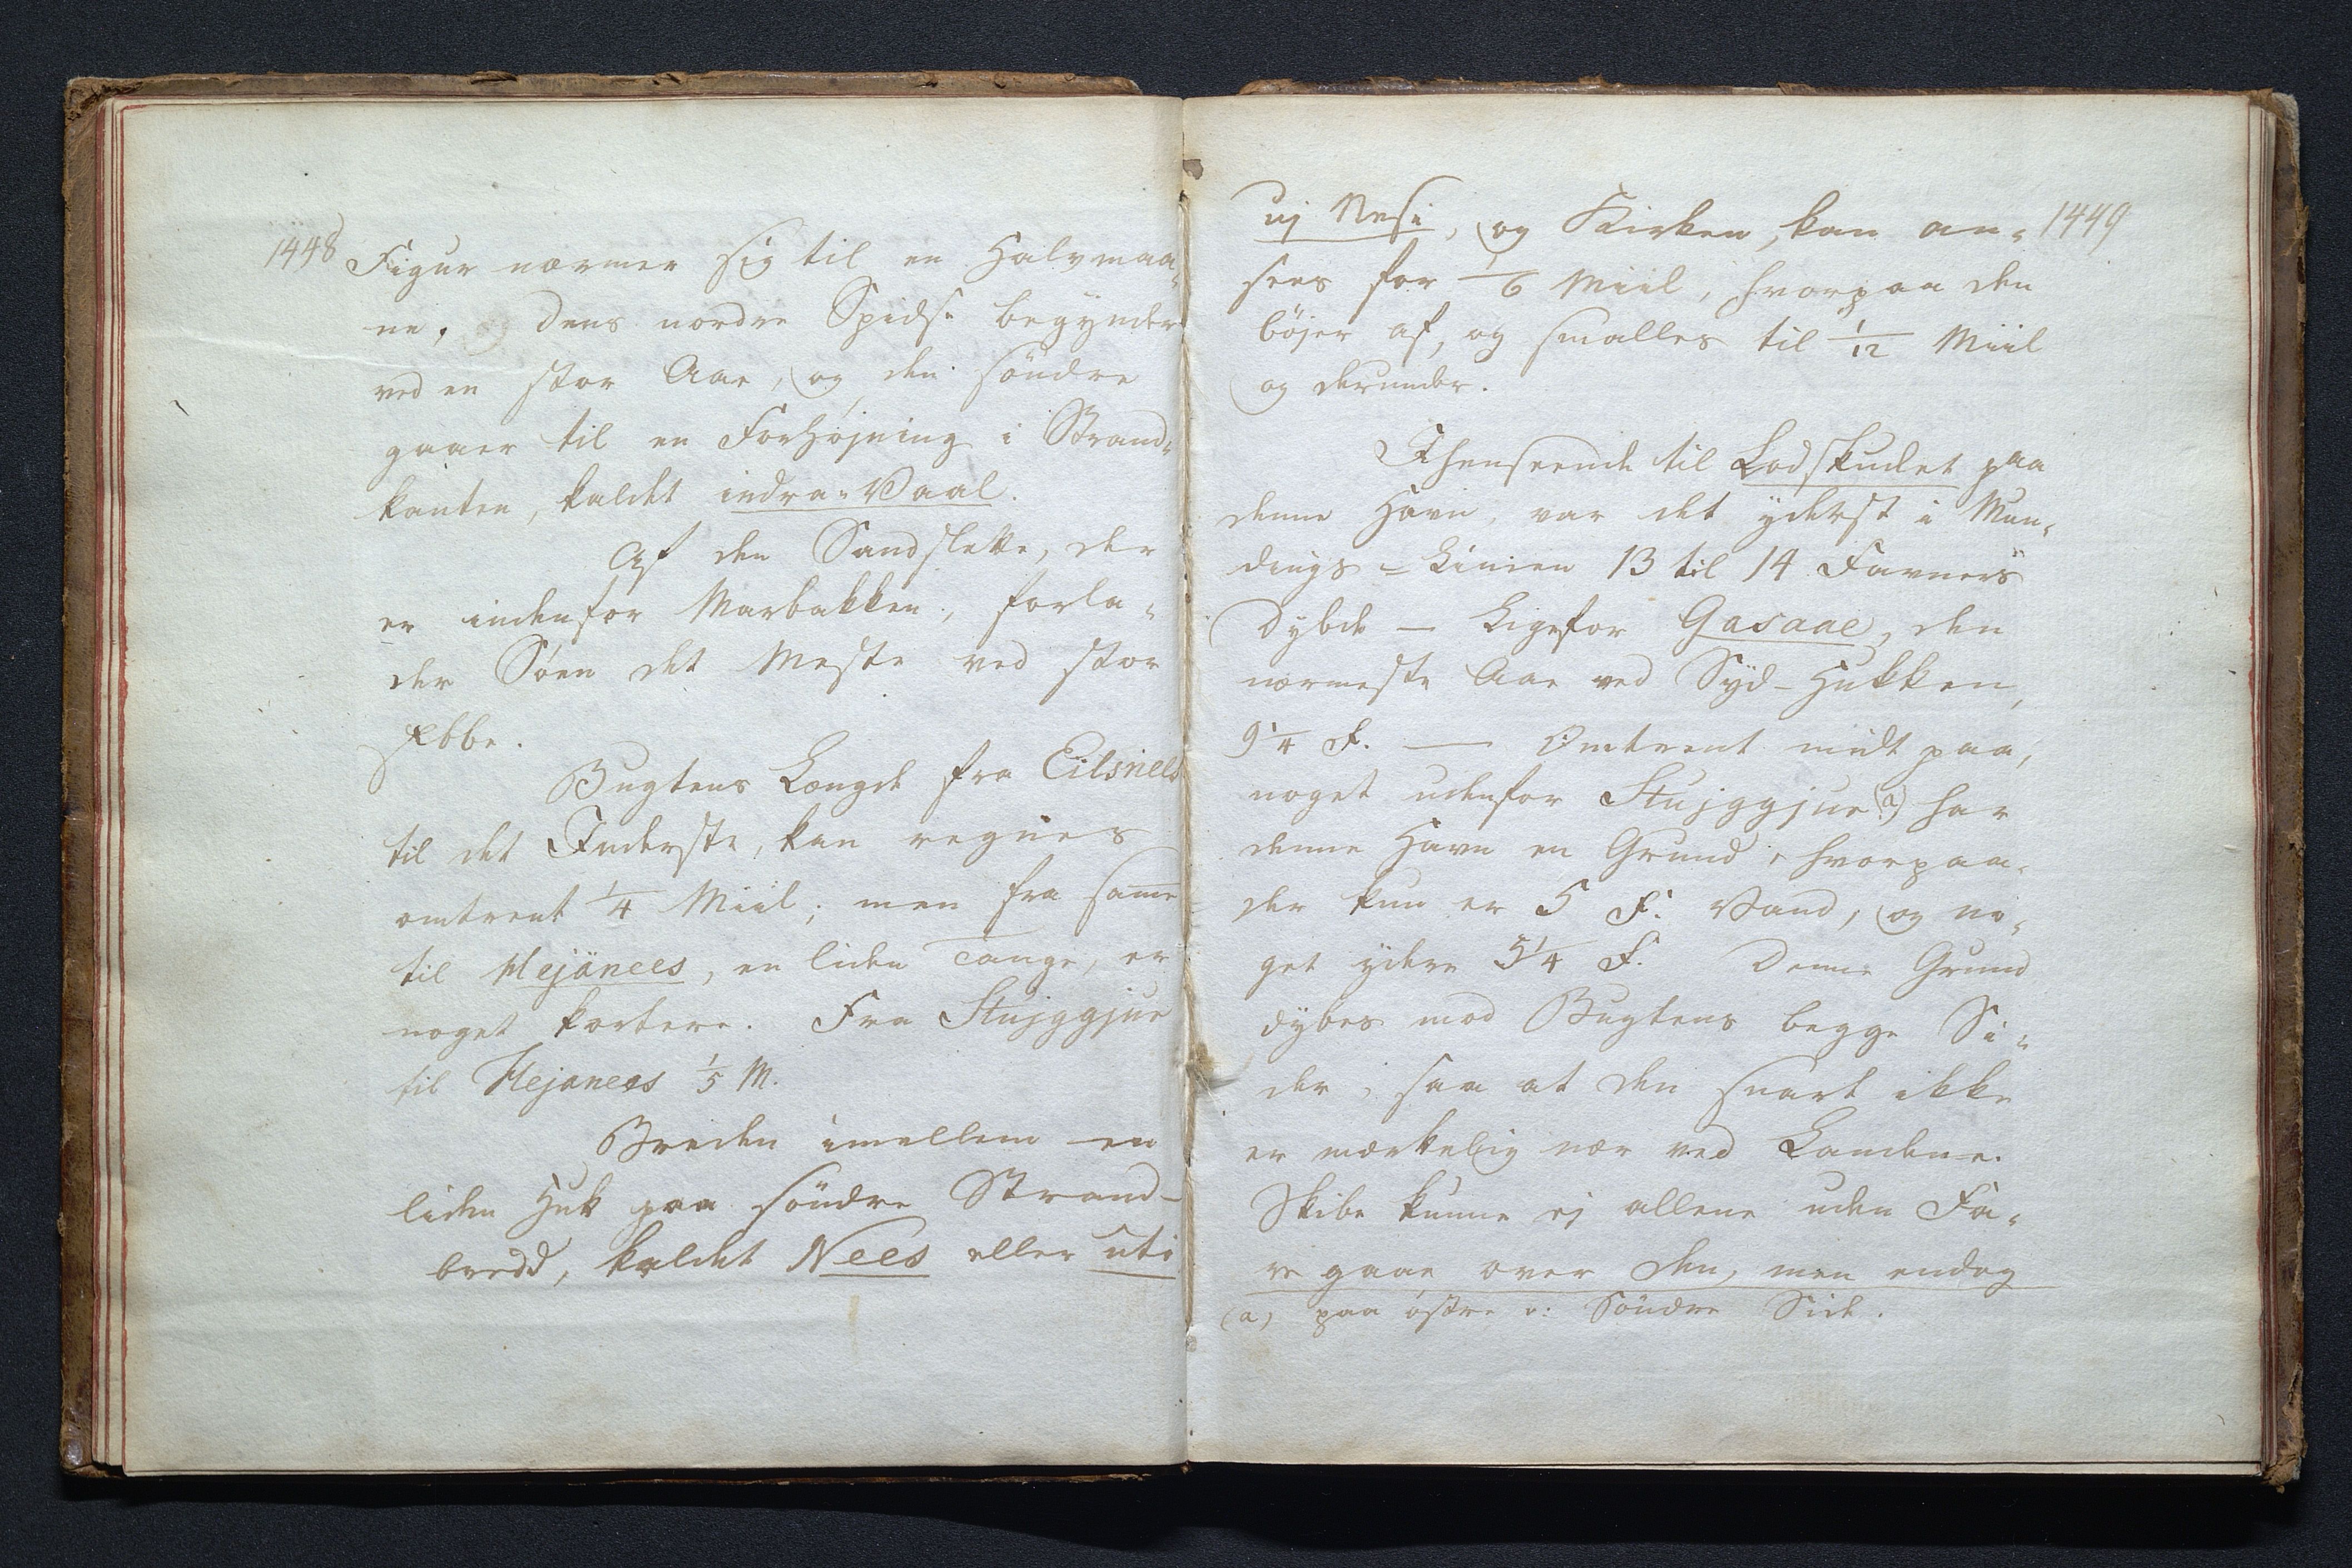 1448
Figur nærmer sig til en Halvmaa-
ne. Dens nordre Spidse begynder
ved en stor Aae, og den söndre
gaaer til en Forhøjning i Strand-
kanten, kaldet indra-Vaal.
Af den Sandslette, der
er indenfor Marbakken, forla-
der Søen det Meste ved stor
Ebbe.
Bugtens Længde fra Eilsnees
til det Inderste, kan regnes
omtrent 1/4 Miil; men fra samme
til Hejänees, en liden Tange, er
noget kortere. Fra Stujggjue
til Hejanees 1/5 M.
Breden imellem en
liden Huk paa söndre Strand-
bredd, kaldet Nees eller uti
1449
uj Nesi, og Kirken, kan an-
sees for 1/6 Miil, hvorpaa den
böjer af, og smalles til 1/12 Miil
og derunder.
Ihenseende til Lodskudet paa
denne Havn, var det yderst i Mun-
dings-Linien 13 til 14 Favners
Dybde — Ligefor Gasaae, den
nærmeste Aae ved Syd-Hukken,
9 1/4 F. — Omtrent midt paa,
noget udenfor Stujggjue (a) har
denne Havn en Grund, hvorpaa
der kun er 5 F. Vand, og no-
get ydere 5 1/4 F. Denne Grund
dybes mod Bugtens begge Si-
der, saa at den snart ikke
er mærkelig nær ved Landene.
Skibe kunne ej allene uden Fa-
re gaae over den, men endog
(a) paa østre o: Söndre Side.